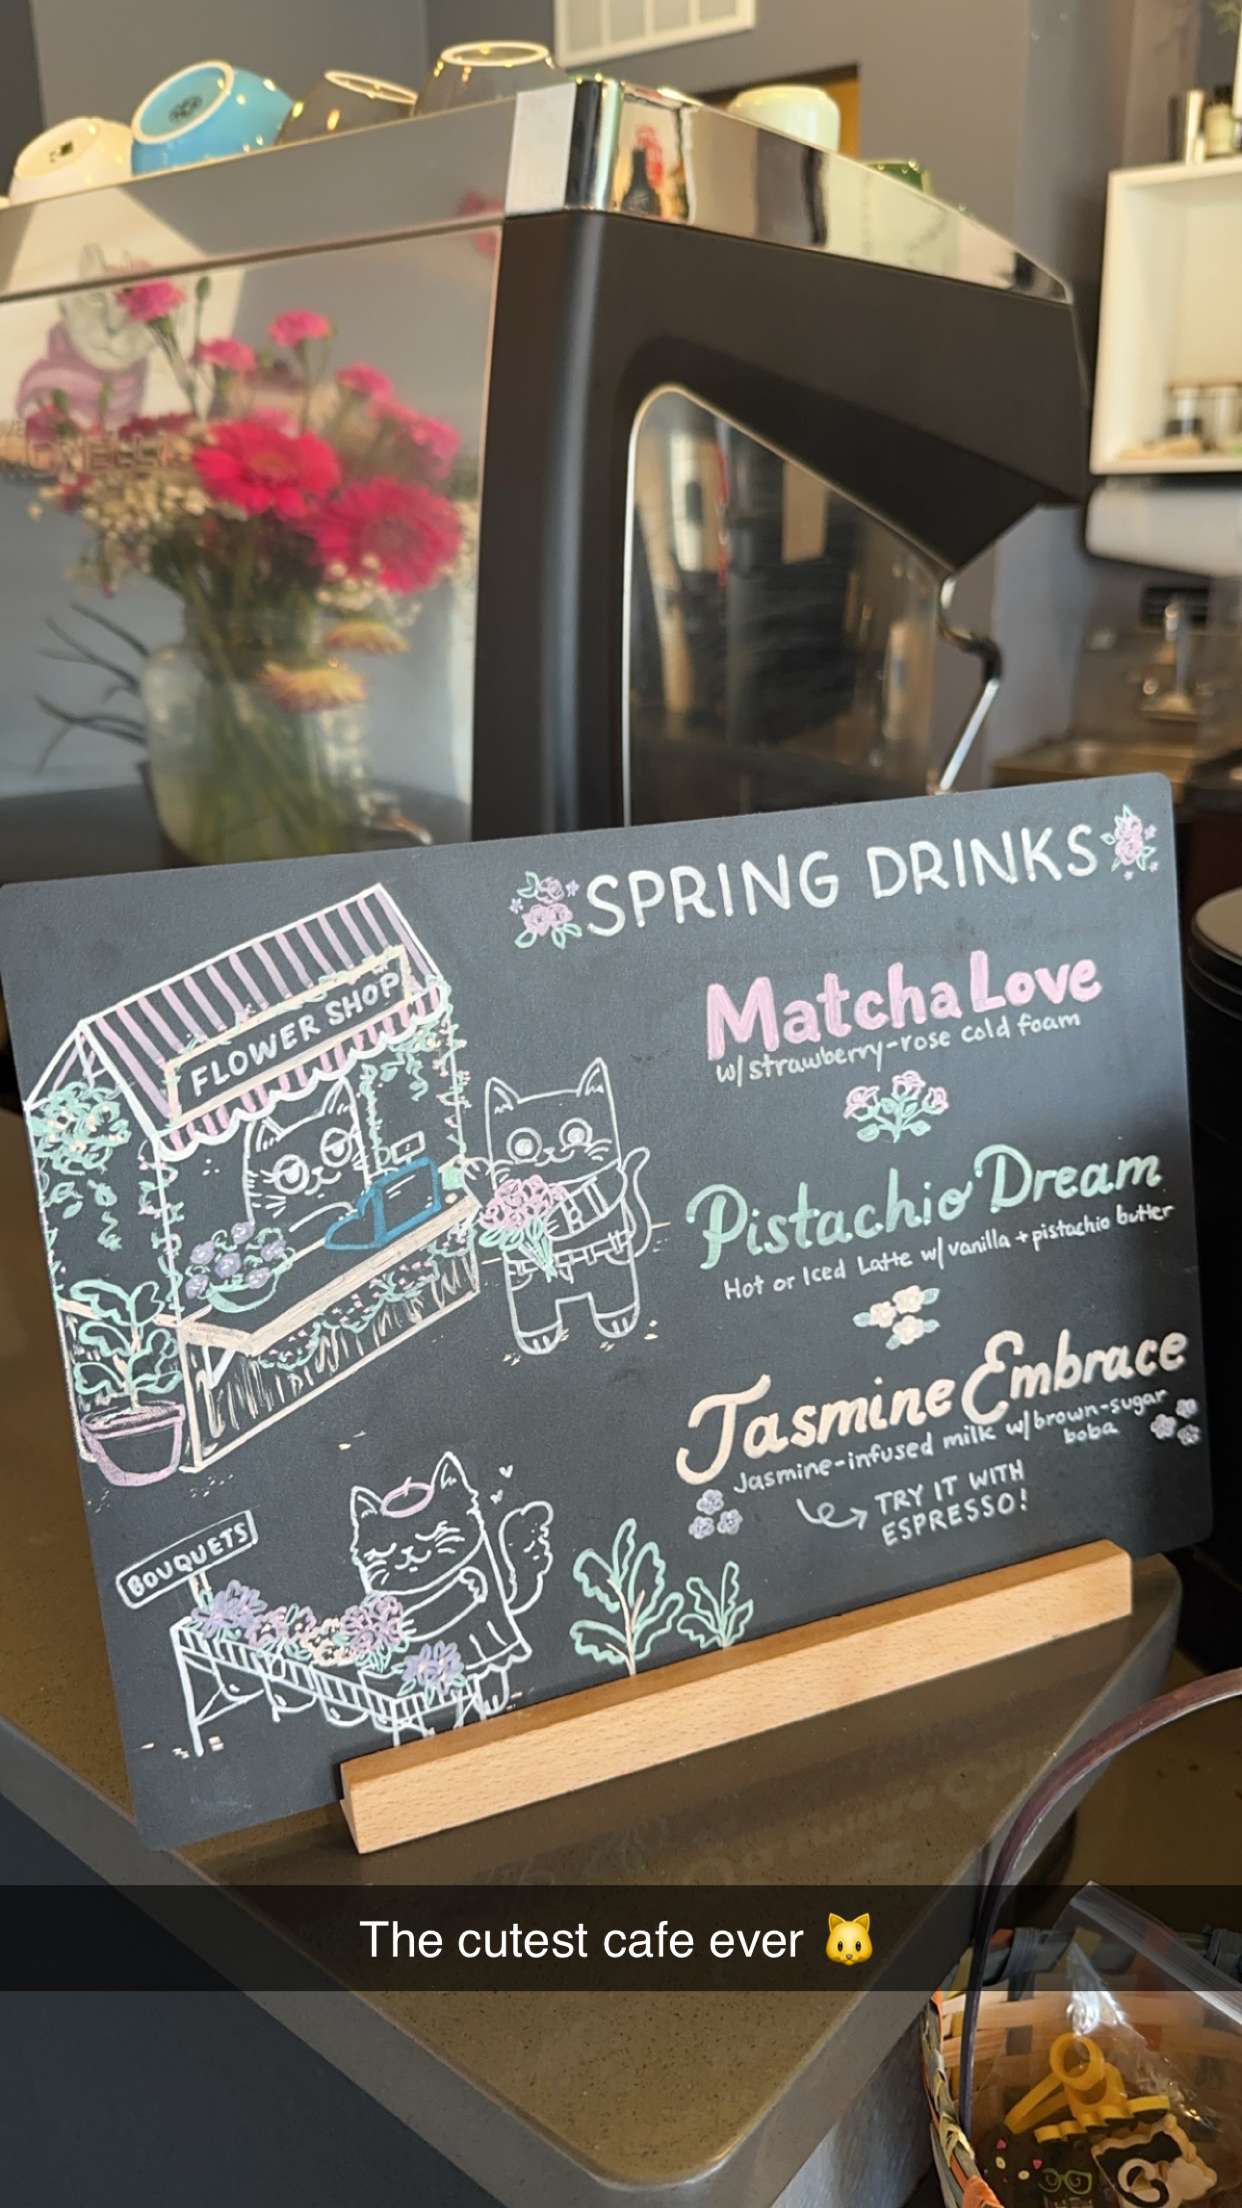 SPRING DRINKS
Matcha Love
w/ strawberry-rose cold foam
Pistachio Dream
Hot or Iced Latte w/ vanilla + pistachio butter
Jasmine Embrace
Jasmine-infused milk w/ brown-sugar
boba
TRY IT WITH
ESPRESSO!
FLOWER SHOP
BOUQUETS
The cutest cafe ever 🐱